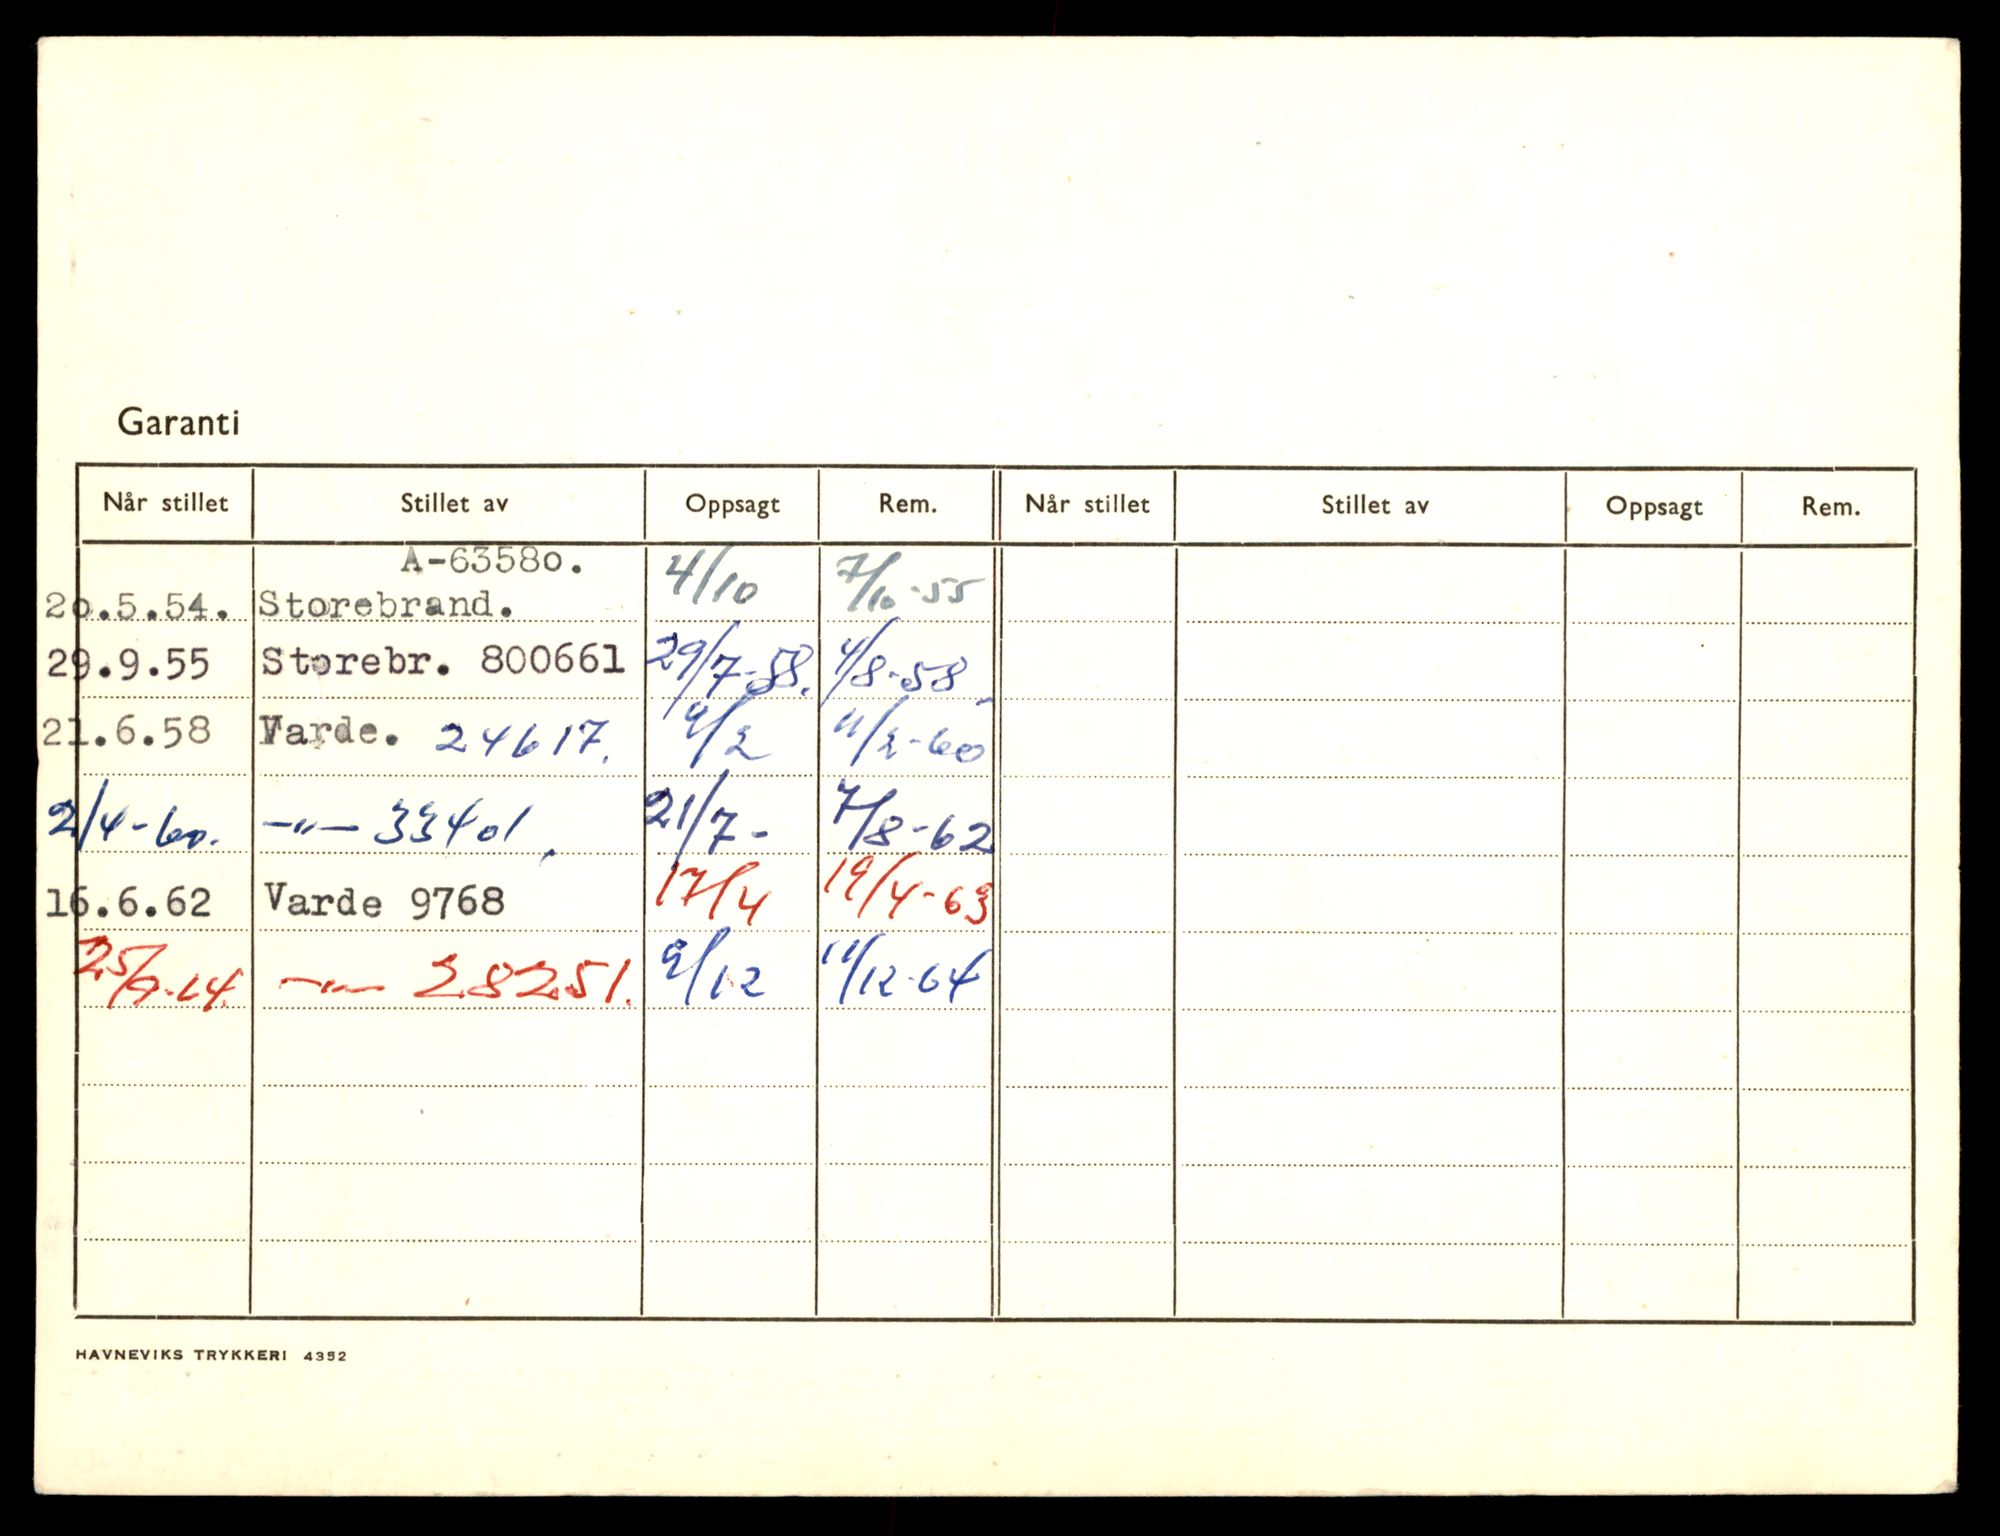 Garanti
Når stillet Stillet av Oppsagt Rem. Når stillet Stillet av Oppsagt Rem.
A-6358o. 4/10 7/10-55
2o.5.54. Storebrand.
29.9.55 Storebr. 800661 29/7-58. 4/8-58
21.6.58 Varde. 24617. 9/2 11/2-60
2/4-60. -"- 33401. 21/7- 7/8-62
16.6.62 Varde 9768 17/4 19/4-63
-"- 28251. 9/12 11/12-64
HAVNEVIKS TRYKKERI 4352